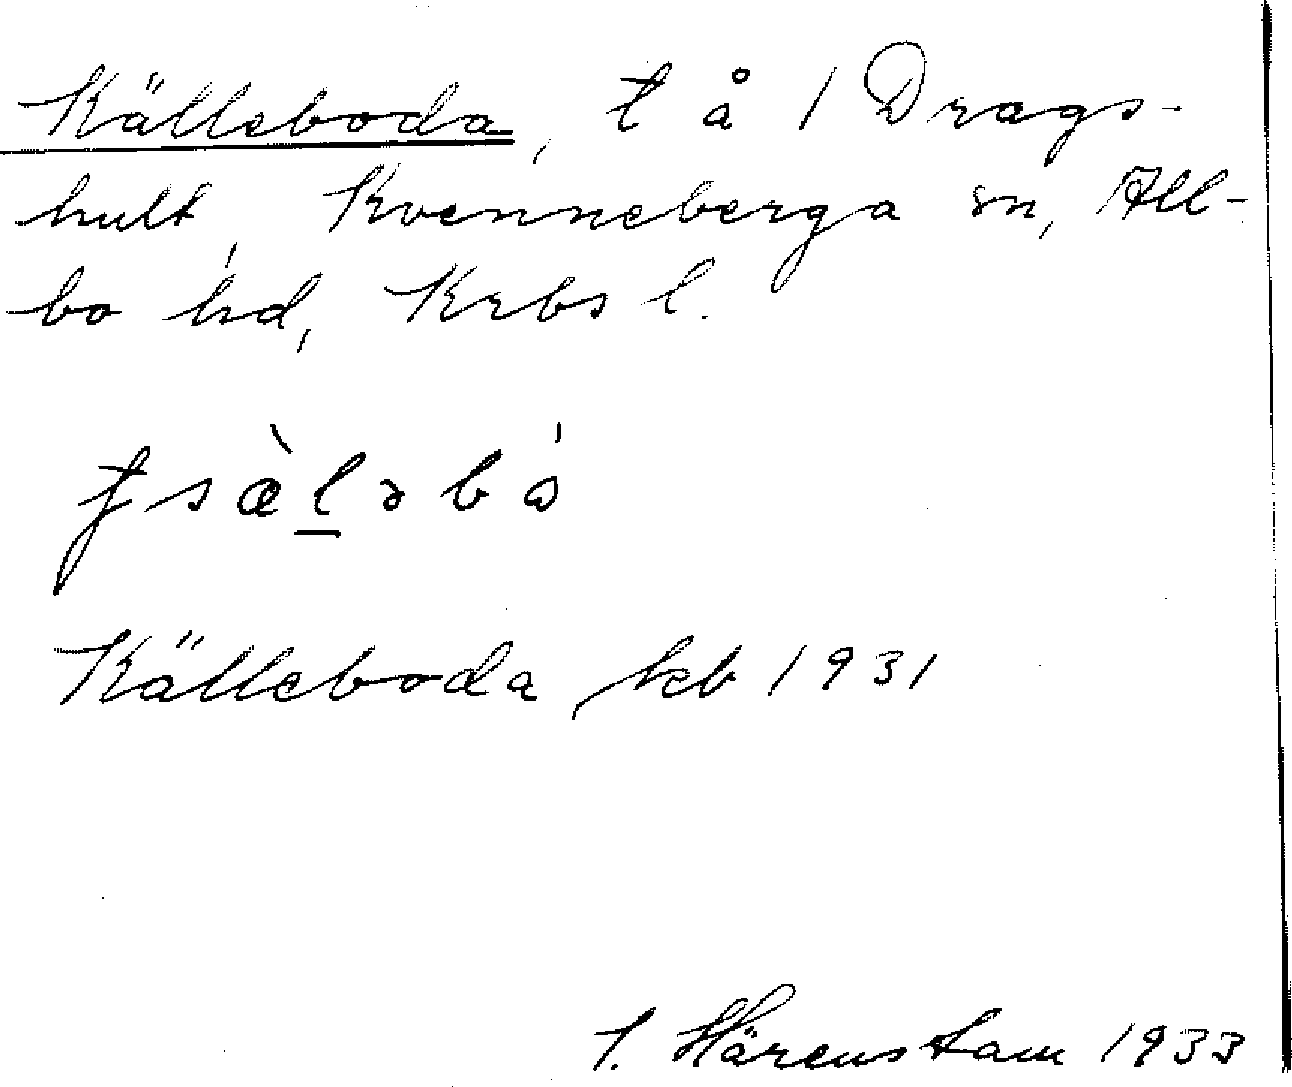 Källeboda, t å 1 Drags-
hult, Kvenneberga sn, All-
bo hd, Krbs l.
Källeboda, kb 1931
I. Härenstam 1933